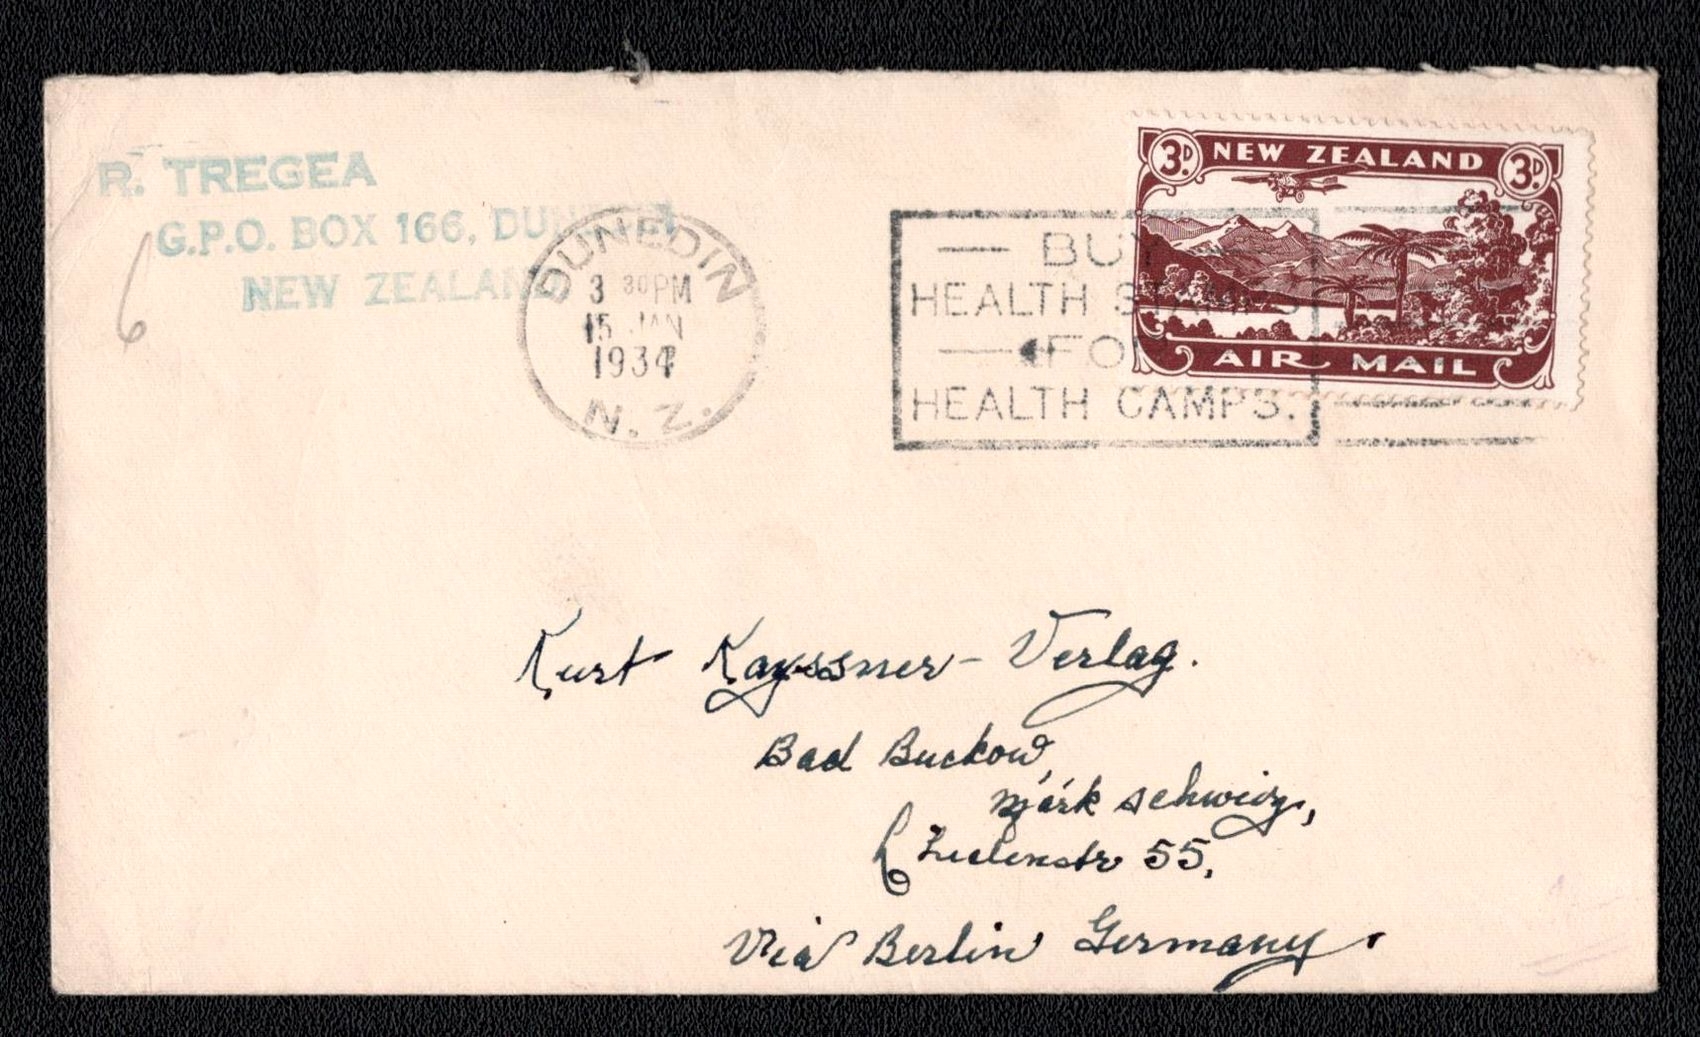 R. TREGEA
G.P.O. BOX 166, DUNEDIN
NEW ZEALAND
6
DUNEDIN
3 30 PM
15 JAN
1934
N. Z.
BUY
HEALTH STAMPS
FOR
HEALTH CAMPS.
3D NEW ZEALAND 3D
AIR MAIL
Kurt Kayssner-Verlag.
Bad Buckow,
märk schweiz,
55,
Via Berlin Germany.